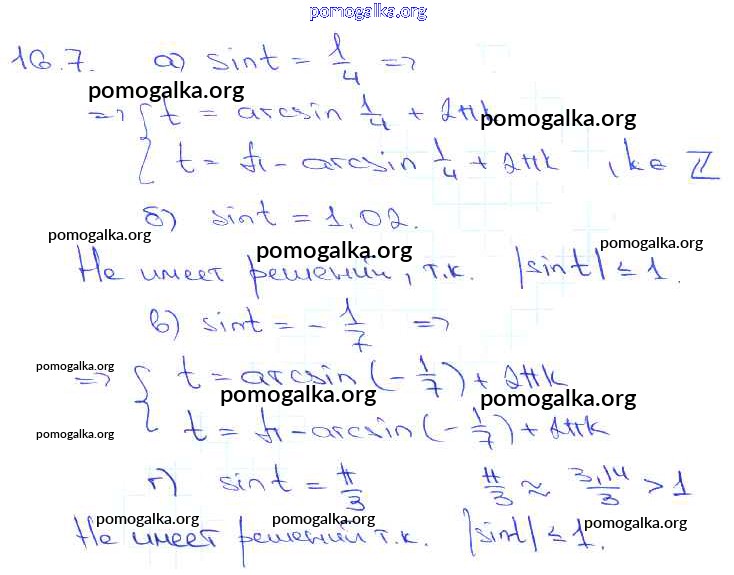 pomogalka.org
16.7. а) sint = 1/4 =>
pomogalka.org
=> { t = arcsin 1/4 + 2πk
pomogalka.org
t = π - arcsin 1/4 + 2πk , k ∈ Z
б) sint = 1,02.
pomogalka.org pomogalka.org pomogalka.org
Не имеет решений, т.к. |sint| ≤ 1.
в) sint = - 1/7 =>
pomogalka.org
=> { t = arcsin (- 1/7) + 2πk
pomogalka.org pomogalka.org
t = π - arcsin (- 1/7) + 2πk
pomogalka.org
г) sint = π/3 π/3 ≈ 3,14/3 > 1
pomogalka.org pomogalka.org pomogalka.org
Не имеет решений т.к. |sint| ≤ 1.